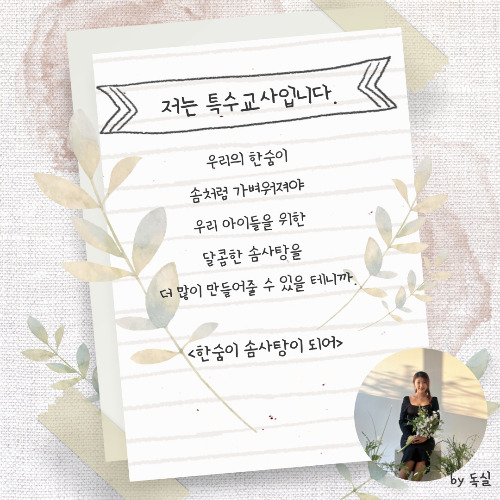 저는 특수교사입니다.
우리의 한숨이
솜처럼 가벼워져야
우리 아이들을 위한
달콤한 솜사탕을
더 많이 만들어줄 수 있을 테니까.
<한숨이 솜사탕이 되어>
by 독실